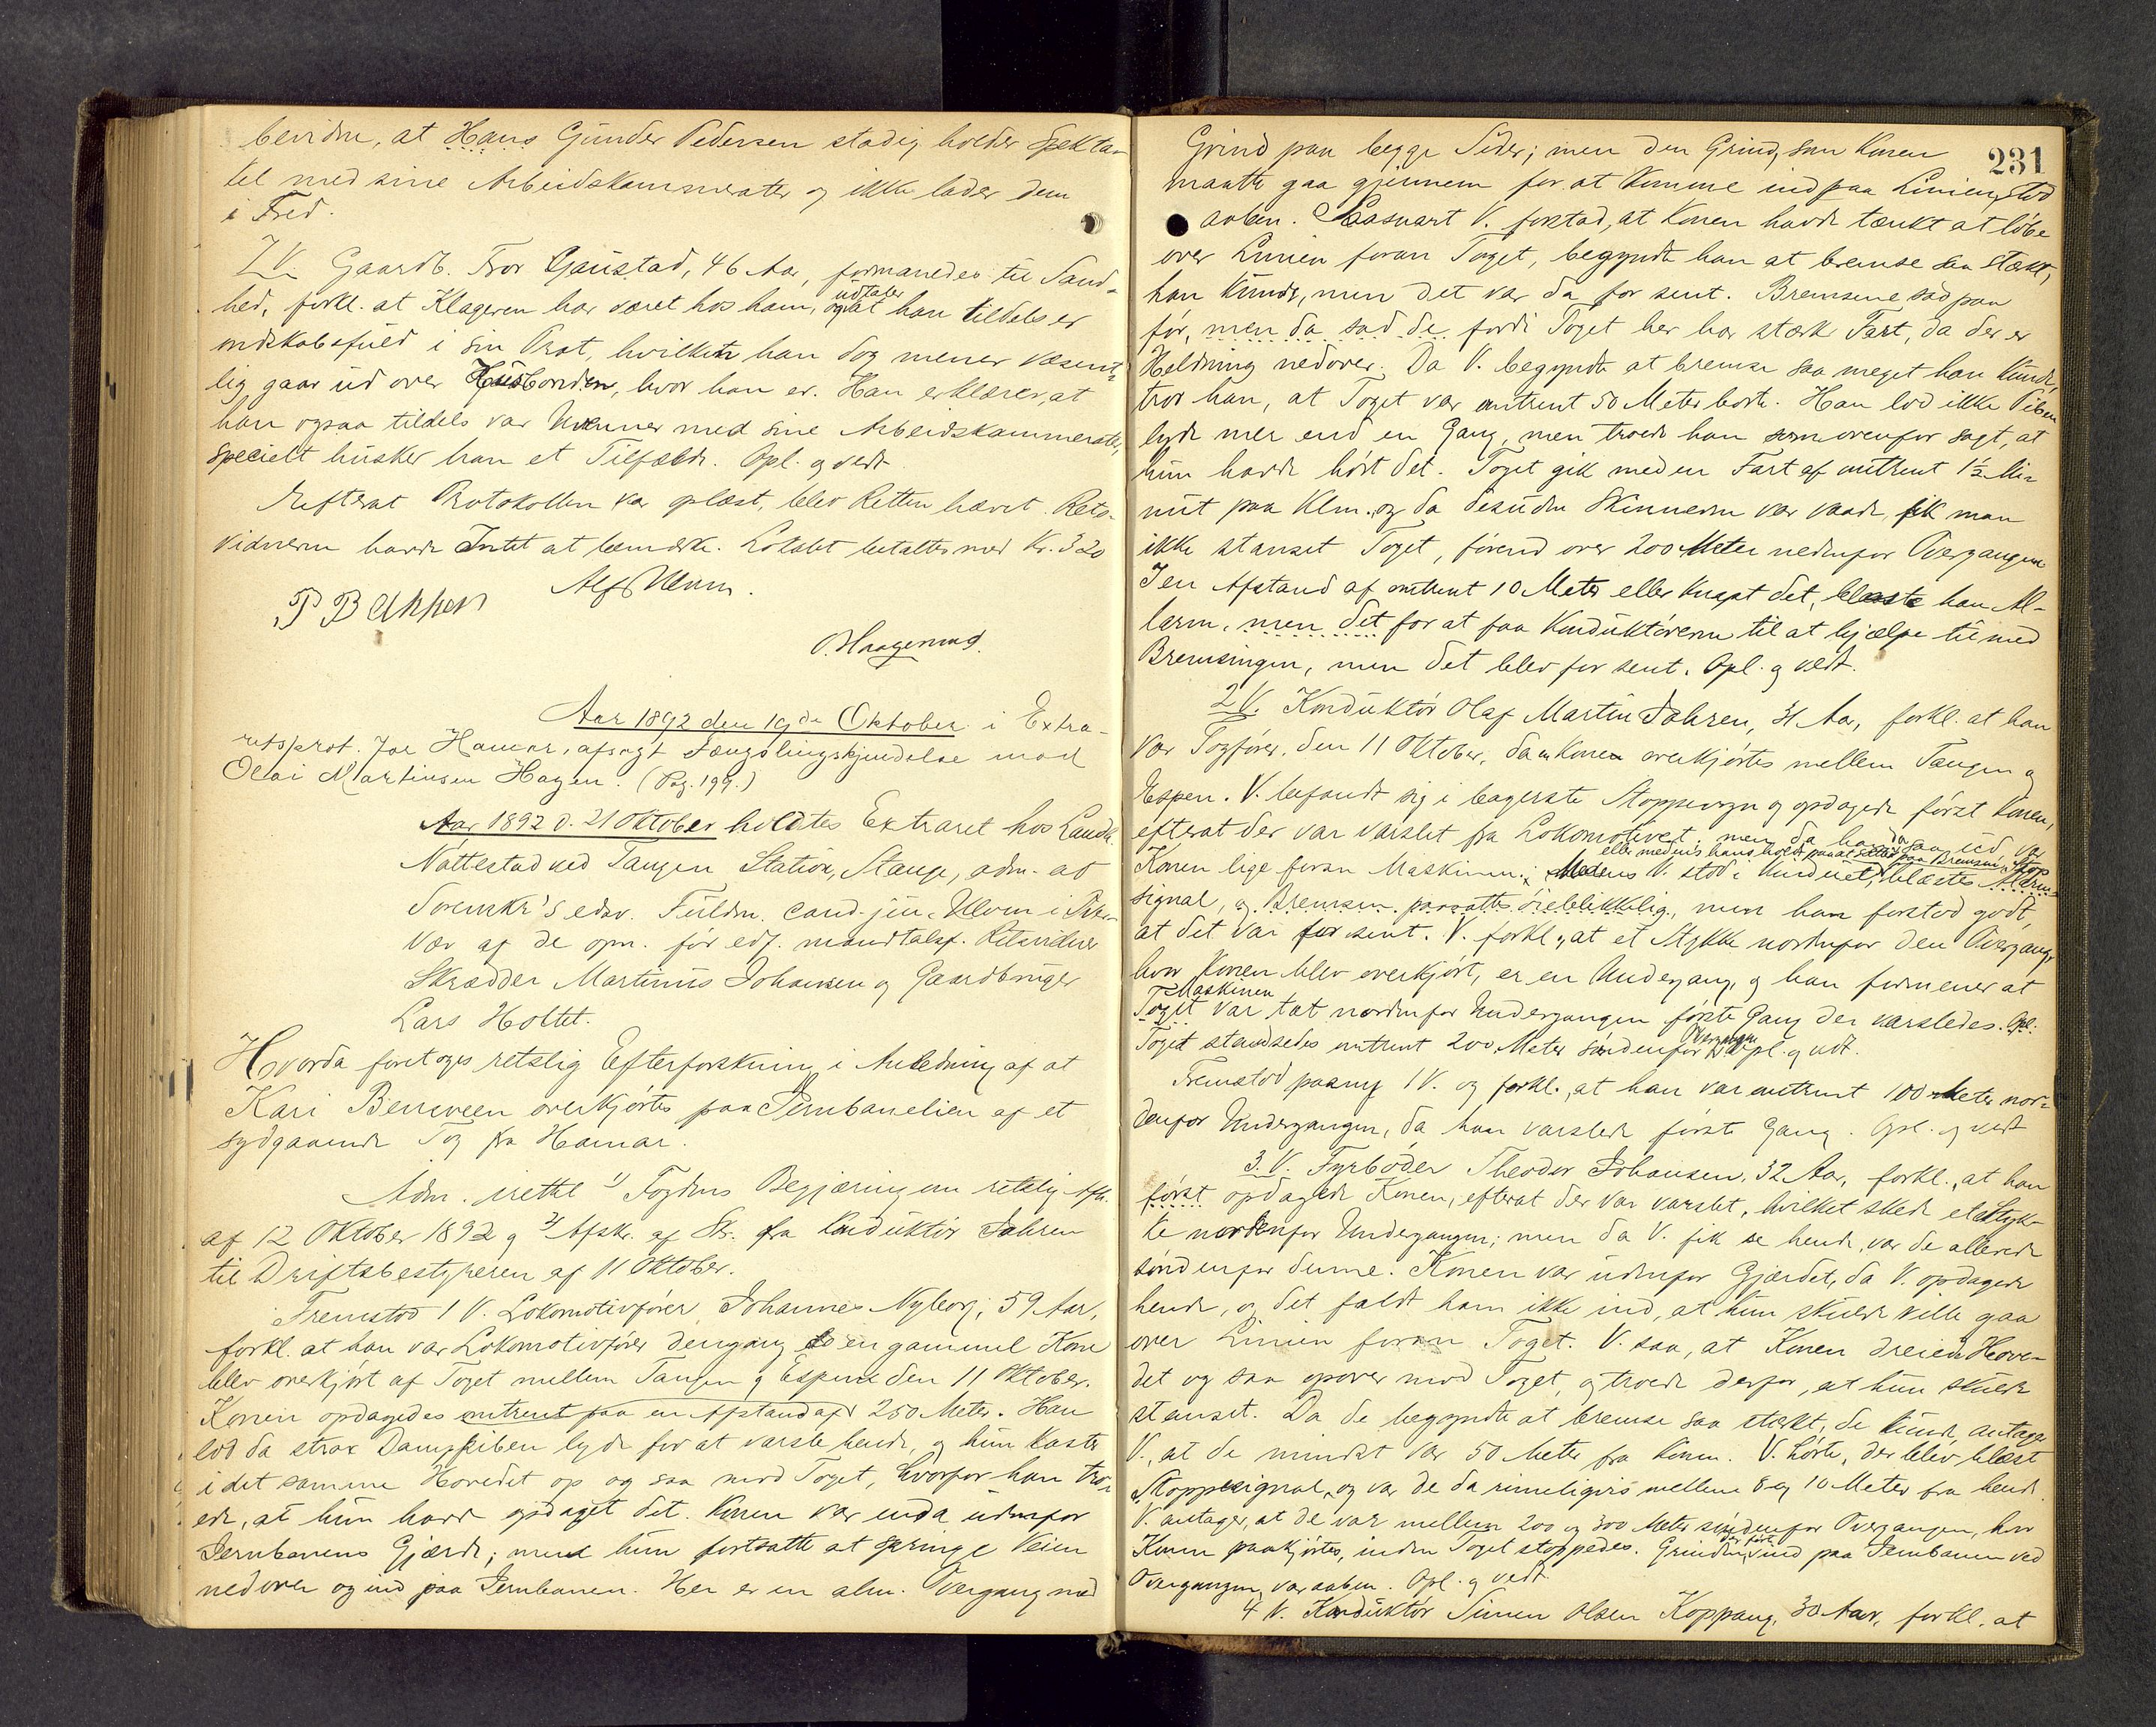 bevidne, at Hans Gunder Pedersen stadig holder Spekta-
kel med sine Arbeidskammerater og ikke lader dem
i Fred.
7 V. Gaardb. Tror Gaustad, 46 Aar, formanedes til Sand-
hed, forkl. at Klageren har været hos ham, og udtaler at han tildels er
ondskabsfuld i sin Prat, hvilket han dog mener væsent-
lig gaar ud over Husbonden, hvor han er. Han erklærer, at
han ogsaa tildels var Uvenner med sine Arbeidskammerater,
specielt husker han et Tilfælde. Opl. og vedt.
Efterat Protokollen var oplæst, blev Retten hævet. Rets-
vidnerne havde Intet at bemærke. Lokalet betaltes med Kr. 3 20
P Bakken Alf Ulvin.
O. Haagenrud.
Aar 1892 den 19de Oktober i Extra-
retsprot. for Hamar, afsagt Fængslingskjendelse mod
Olai Martinsen Hagen. (Pag. 199.)
Aar 1892 d. 21 Oktober holdtes Extraret hos Landh.
Nattestad ved Tangen Station, Stange, adm. af
Sorenskr's edsv. Fuldm. cand. jur. Ulvin i Over-
vær af de opn. før edf. mandtalsf. Retsvidner
Skrædder Martinus Johansen og Gaardbruger
Lars Holtet.
Hvorda foretoges retslig Efterforskning i Anledning af at
Kari Benveen overkjørtes paa Jernbanelien af et
sydgaaende Tog fra Hamar.
Adm. irettel 1) Fogdens Begjæring om retslig Efh.
af 12 Oktober 1892 og 2) Afskr. af Skr. fra Konduktør Jahren
til Driftsbestyreren af 11 Oktober.
Fremstod 1 V. Lokomotivfører Johannes Nyborg, 59 Aar,
forkl. at han var Lokomotivfører dengang en gammel Kone
blev overkjørt af Toget mellem Tangen og Espen den 11 Oktober.
Konen opdagedes omtrent paa en Afstand af 250 Meter. Han
lod da strax Damppiben lyde for at varsle hende, og hun kaste
i det samme Hovedet op og saa mod Toget, hvorfor han tro-
ede, at hun havde opdaget det. Konen var enda udenfor
Jernbanens Gjærde; men hun fortsatte at springe Veien
nedover og ind paa Jernbanen. Her er en alm. Overgang med
231
Grind paa begge Sider; men den Grind, som Konen
maatte gaa gjennem for at komme ind paa Linien, stod
aaben. Saasnart V. forstod, at Konen havde tænkt at løbe
over Linien foran Toget, begyndte han at bremse saa stærkt,
han kunde, men det var da for sent. Bremsene sad paa
før, men da sad de fordi Toget her har stærk Fart, da der er
Heldning nedover. Da V. begyndte at bremse saa meget han kunde,
tror han, at Toget var omtrent 50 Meter borte. Han lod ikke Piben
lyde mer end en Gang, men troede han som ovenfor sagt, at
hun havde hørt det. Toget gik med en Fart af omtrent 1½ Mi-
nut paa Klm. og da desuden Skinnerne var vaade, fik man
ikke stanset Toget, førend over 200 Meter nedenfor Overgangen.
I en Afstand af omtrent 10 Meter eller knapt det, blæste han Al-
larm, men det for at faa Konduktørerne til at hjælpe til med
Bremsingen, men det blev for sent. Opl. og vedt.
2 V. Konduktør Olaf Martin Jahren, 31 Aar, forkl. at han
var Togfører, den 11 Oktober, da en Konen overkjørtes mellem Tangen og
Espen. V. befandt sig i bagerste Stoppevogn og opdagede først Konen,
efterat der var varslet fra Lokomotivet; men da han da saa ud var
Konen lige foran Maskinen. Medens V. stod i Vinduet, eller medens han holdt paa at sætte paa Bremsen, blæstes Stop Alarm
signal, og Bremsen paasattes øieblikkelig, men han forstod godt,
at det var for sent. V. forkl., at et Stykke nordenfor den Overgang,
hvor Konen blev overkjørt, er en Undergang, og han formener at
Toget Maskinen var tæt nordenfor Undergangen første Gang der varsledes. Opl.
Toget standsedes omtrent 200 Meter søndenfor Overgangen. Opl. og vedt.
Fremstod paany 1 V. og forkl., at han var omtrent 100 Meter nor-
denfor Undergangen, da han varslede første Gang. Opl. og vedt
3. V. Fyrbøder Theodor Johansen, 32 Aar, forkl., at han
først opdagede Konen, efterat der var varslet, hvilket skede et Styk-
ke nordenfor Undergangen; men da V. fik se hende, var de allerede
søndenfor denne. Konen var udenfor Gjærdet, da V. opdagede
hende, og det faldt ham ikke ind, at hun skulde ville gaa
over Linien foran Toget. V. saa, at Konen dreied Hove-
det og saa opover mod Toget, og troede derfor, at hun skulde
stanset. Da de begyndte at bremse saa stærkt, de kunde, antager
V., at de mindst var 50 Meter fra Konen. V. hørte, der blev blæst
Stoppesignal, og var de da rimeligvis mellem 8 og 10 Meter fra hende.
V. antager, at de var mellem 200 og 300 Meter søndenfor Overgangen, hvor
Konen paakjørtes, inden Toget stoppedes. Grinden, der førte ind paa Jernbanen ved
Overgangen, var aaben. Opl. og vedt.
4 V. Konduktør Simen Olsen Koppang, 30 Aar, forkl. at